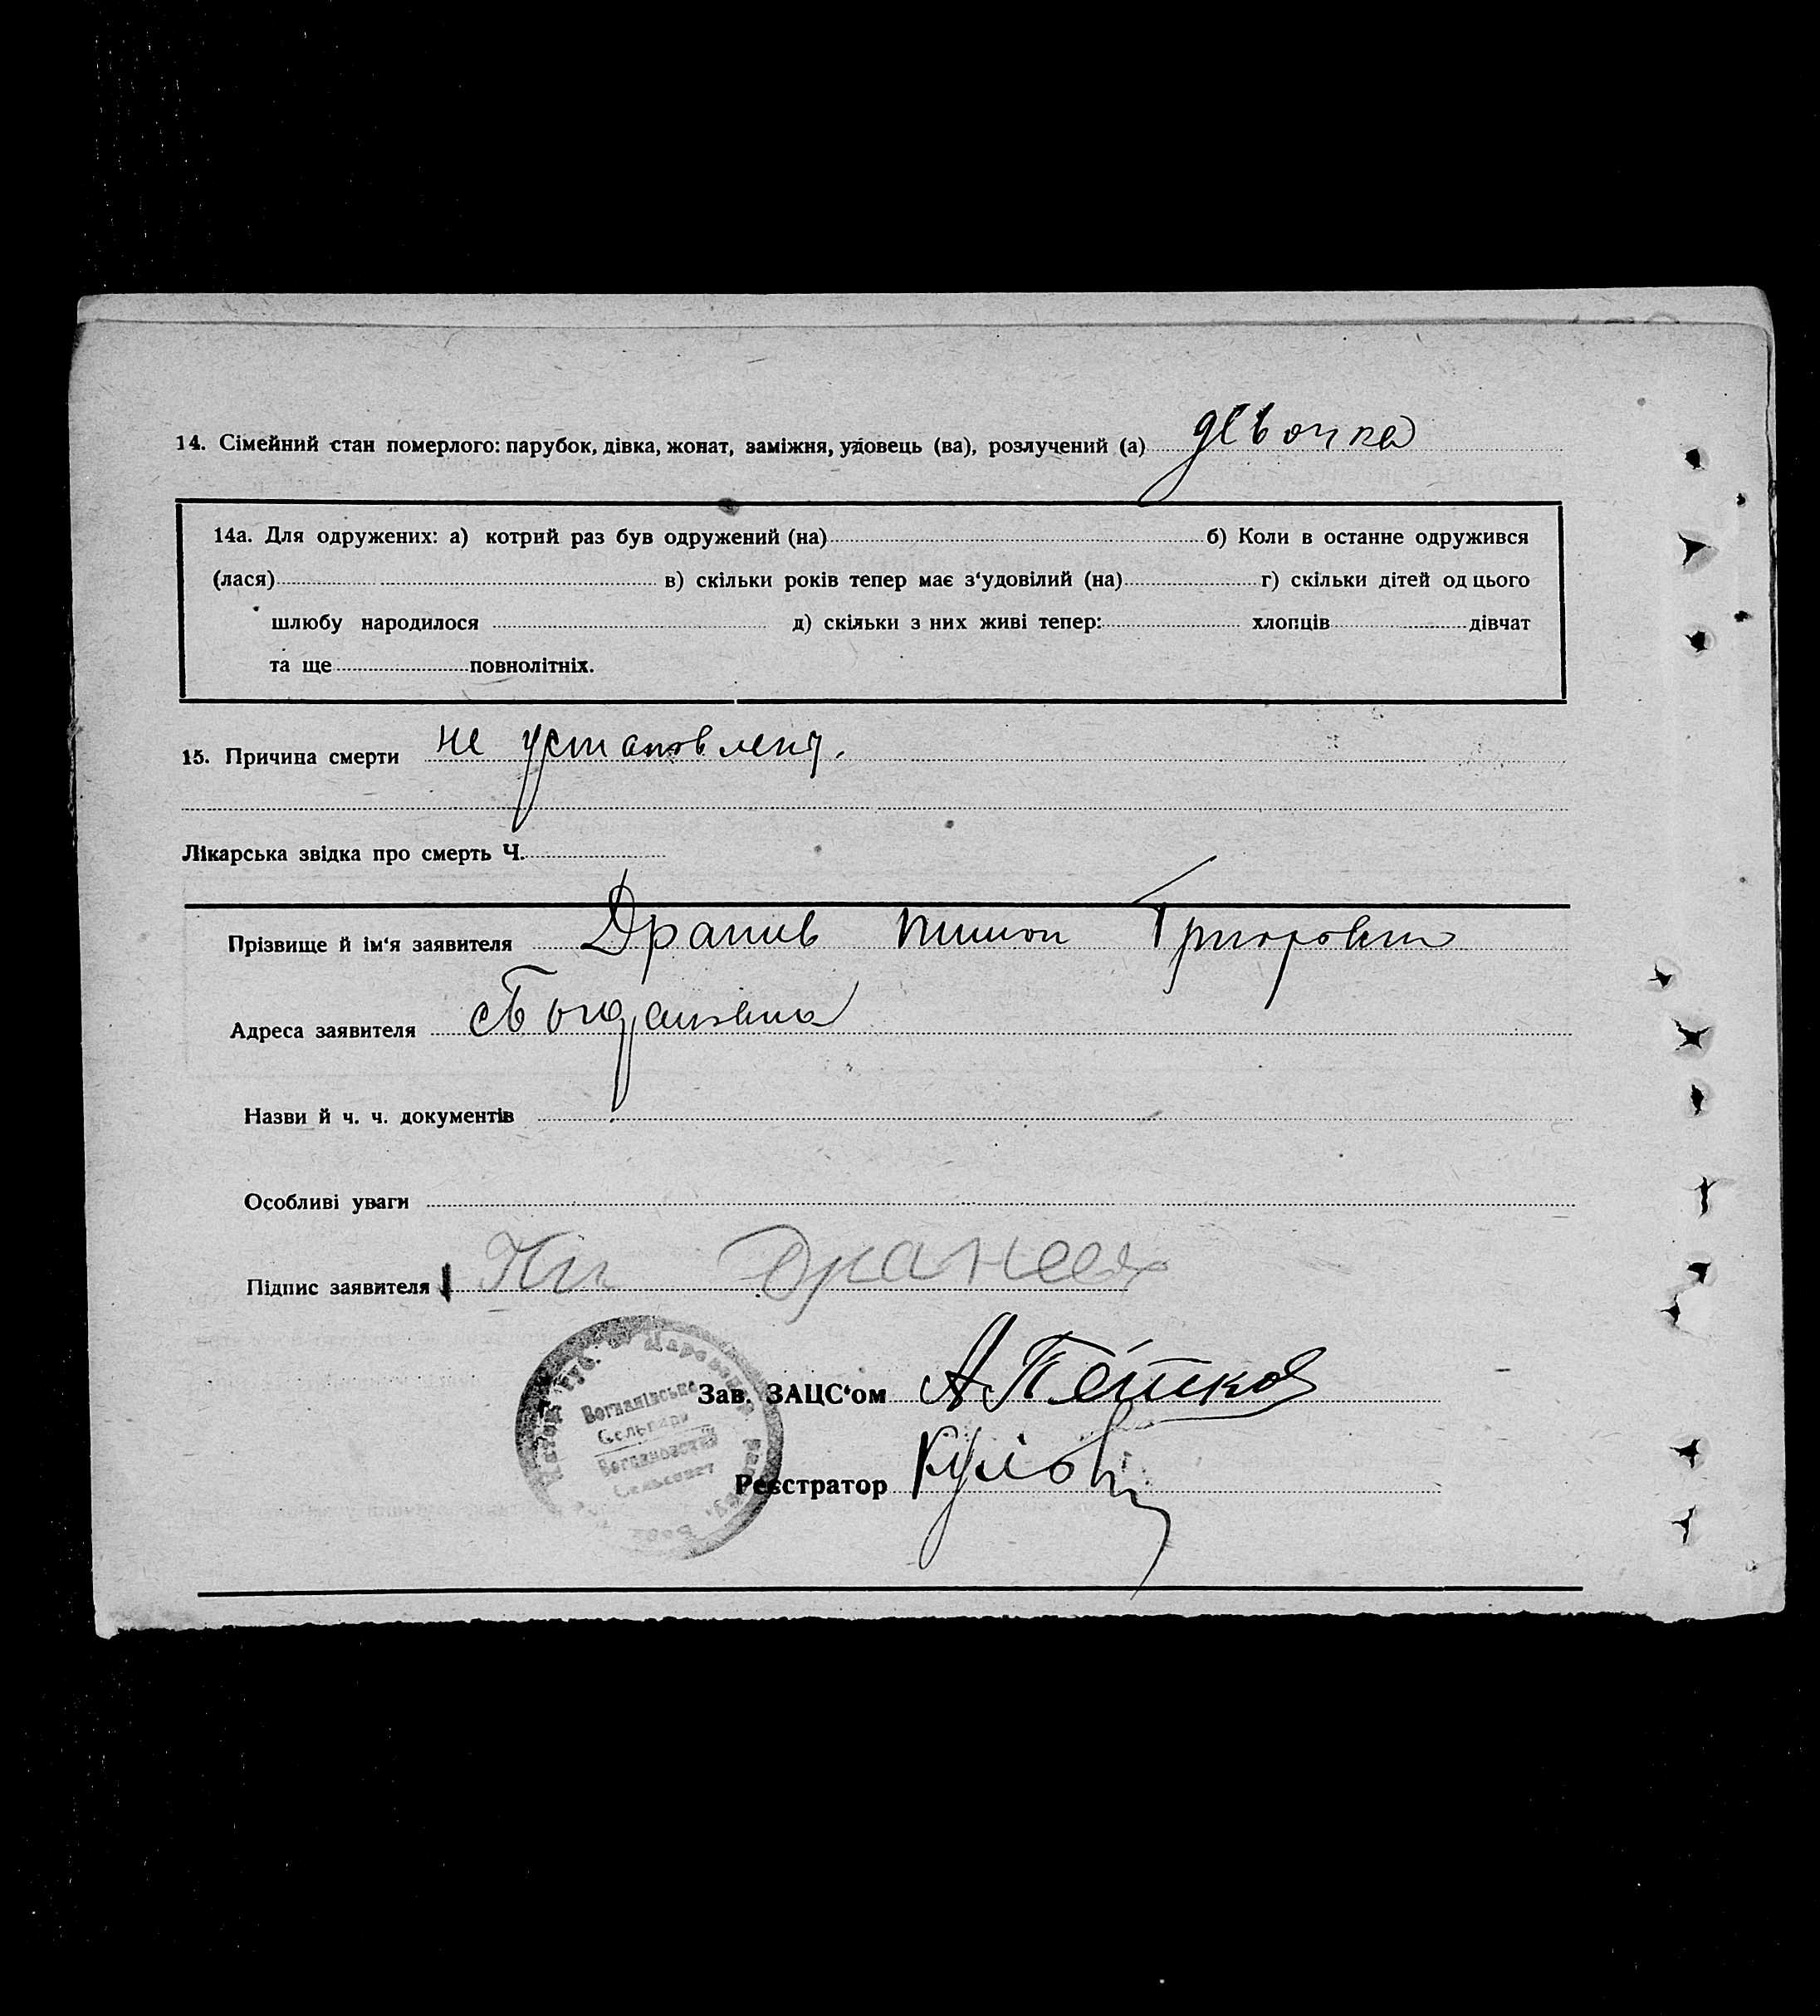 14. Сімейний стан померлого: парубок, дівка, жонат, заміжня, удовець (ва), розлучений (а) девочка
14а. Для одружених: а) котрий раз був одружений (на) б) Коли в останне одружився
(лася) в) скільки років тепер має з‘удовілий (на) г) скільки дітей од цього
шлюбу народилося д) скільки з них живі тепер: хлопців дівчат
та ще повнолітніх.
15. Причина смерти не установлену.
Лікарська звідка про смерть Ч.
Прізвище й ім‘я заявителя Григоровит
Адреса заявителя с Богдановка
Назви й ч. ч. документів
Особливі уваги
Підпис заявителя
Богданівська
Сельрада
Богдановский
Сельсовет
Зав. ЗАЦС‘ом А Петков
Реєстратор